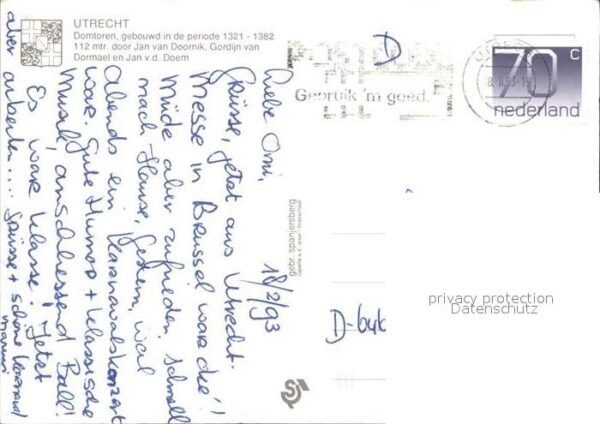 UTRECHT
Domtoren, gebouwd in de periode 1321 - 1382
112 mtr. door Jan van Doornik, Gordijn van
Dormael en Jan v.d. Doem
D
Gebruik 'm goed.
8.II.93-19
70 c
nederland
18/2/93
Liebe Omi,
Grüsse, jetzt aus Utrecht.
Messe in Brüssel war
müde aber zufrieden. Schnell
nach Hause, Gestern, war
Abends ein Karnavalskonzert
war. Gute Humor + klassische
Musik, anschliessend Ball!
Es war klasse! Jetzt
aber arbeiten... Grüsse + schöne
gebr. spanjersberg
D-646
privacy protection
Datenschutz